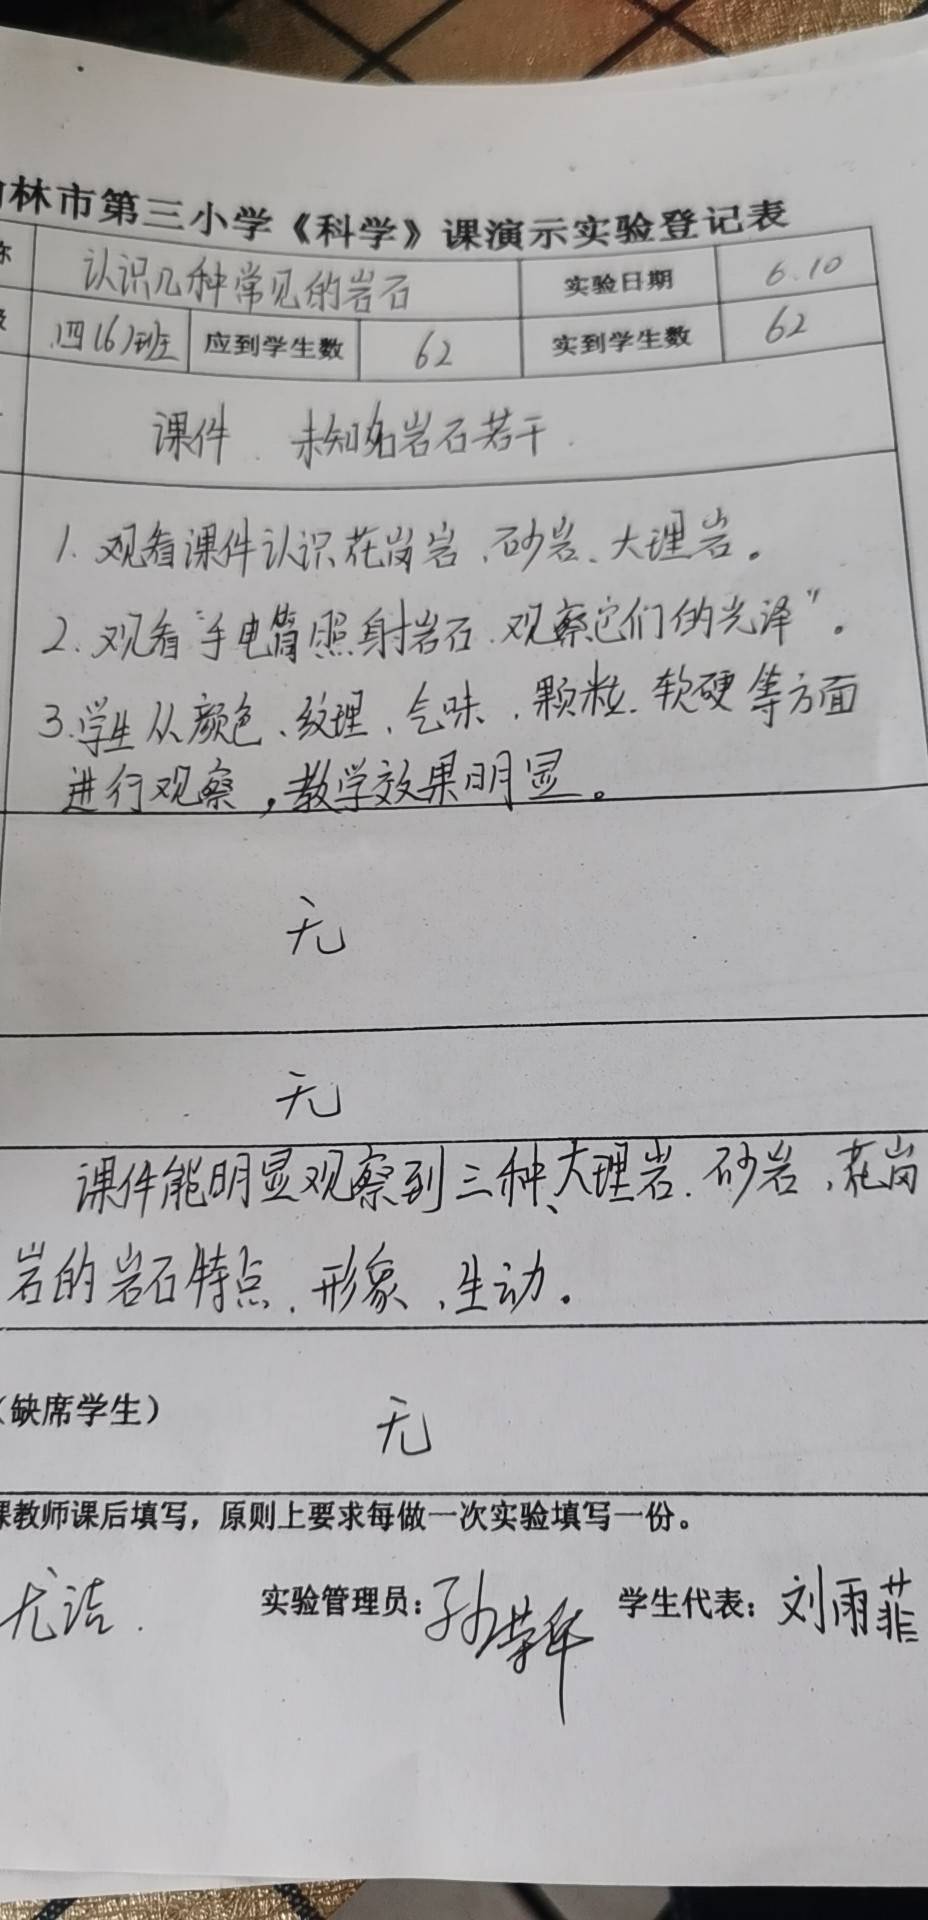 林市第三小学《科学》课演示实验登记表
认识几种常见的岩石 实验日期 6.10
四(6)班 应到学生数 62 实到学生数 62
课件 未知名岩石若干
1. 观看课件认识花岗岩、砂岩、大理岩。
2. 观看“手电筒照射岩石、观察它们的光泽”。
3. 学生从颜色、纹理、气味、颗粒、软硬等方面
进行观察,教学效果明显。
无
无
课件能明显观察到三种、大理岩、砂岩、花岗
岩的岩石特点、形象、生动。
(缺席学生) 无
课教师课后填写,原则上要求每做一次实验填写一份。
尤洁 实验管理员: 孙 学生代表: 刘雨菲